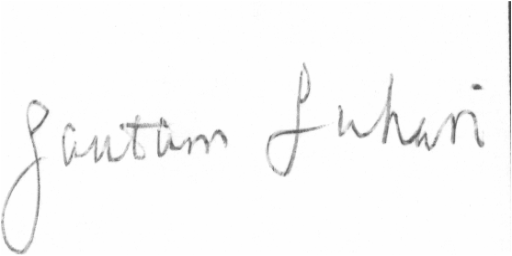 Gautam Luhari